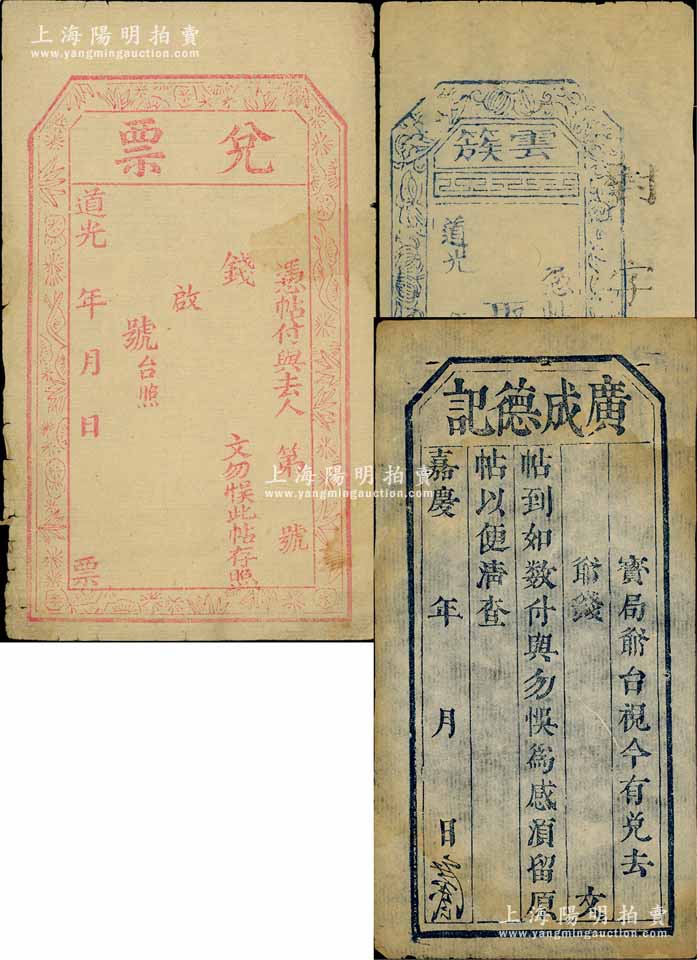 上海陽明拍賣
www.yangmingauction.com
兌票
憑帖付與去人 第 號
錢 文勿悞此帖存照
啟
號台照
道光 年 月 日 票
雲簇
道光
憑帖
字
上海陽明拍賣
www.yangmingauction.com
廣成德記
寶局 台視今有兌去
錢 文
帖到如数付與勿悞為感湏留原
帖以便清查
嘉慶 年 月 日
上海陽明拍賣
www.yangmingauction.com